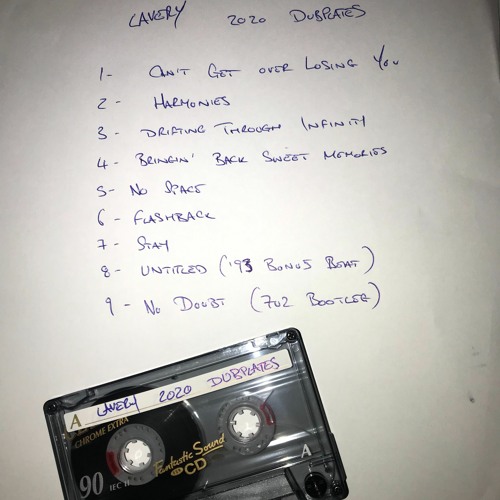 LAVERY 2020 DUBPLATES
1- CAN'T GET OVER LOSING YOU
2- HARMONIES
3- DRIFTING THROUGH INFINITY
4- BRINGIN' BACK SWEET MEMORIES
5- NO SPACE
6- FLASHBACK
7- STAY
8- UNTITLED ('93 BONUS BEAT)
9- NO DOUBT (702 BOOTLEG)
A LAVERY 2020 DUBPLATES
CHROME EXTRA
Fantastic Sound
CD
A
90 IEC II